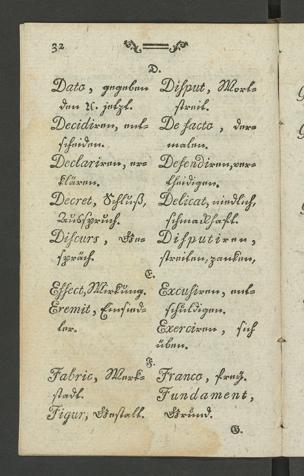 32
D.
Dato, gegeben
den u. jetzt.
Decidiren, ent-
scheiden.
Declariren, er-
klären.
Decret, Schluß,
Ausspruch.
Discurs, Ge-
spräch.
Disput, Wort-
streit.
De facto, der-
malen.
Defendiren, ver-
theidigen.
Delicat, niedlich,
schmackhaft.
Disputiren,
streiten, zanken,
E.
Effect, Wirkung.
Eremit, Einsied-
ler.
Excusiren, ent-
schuldigen.
Exerciren, sich
üben.
F.
Fabric, Werk-
stadt.
Figur, Gestalt.
Franco, frey.
Fundament,
Grund.
G.